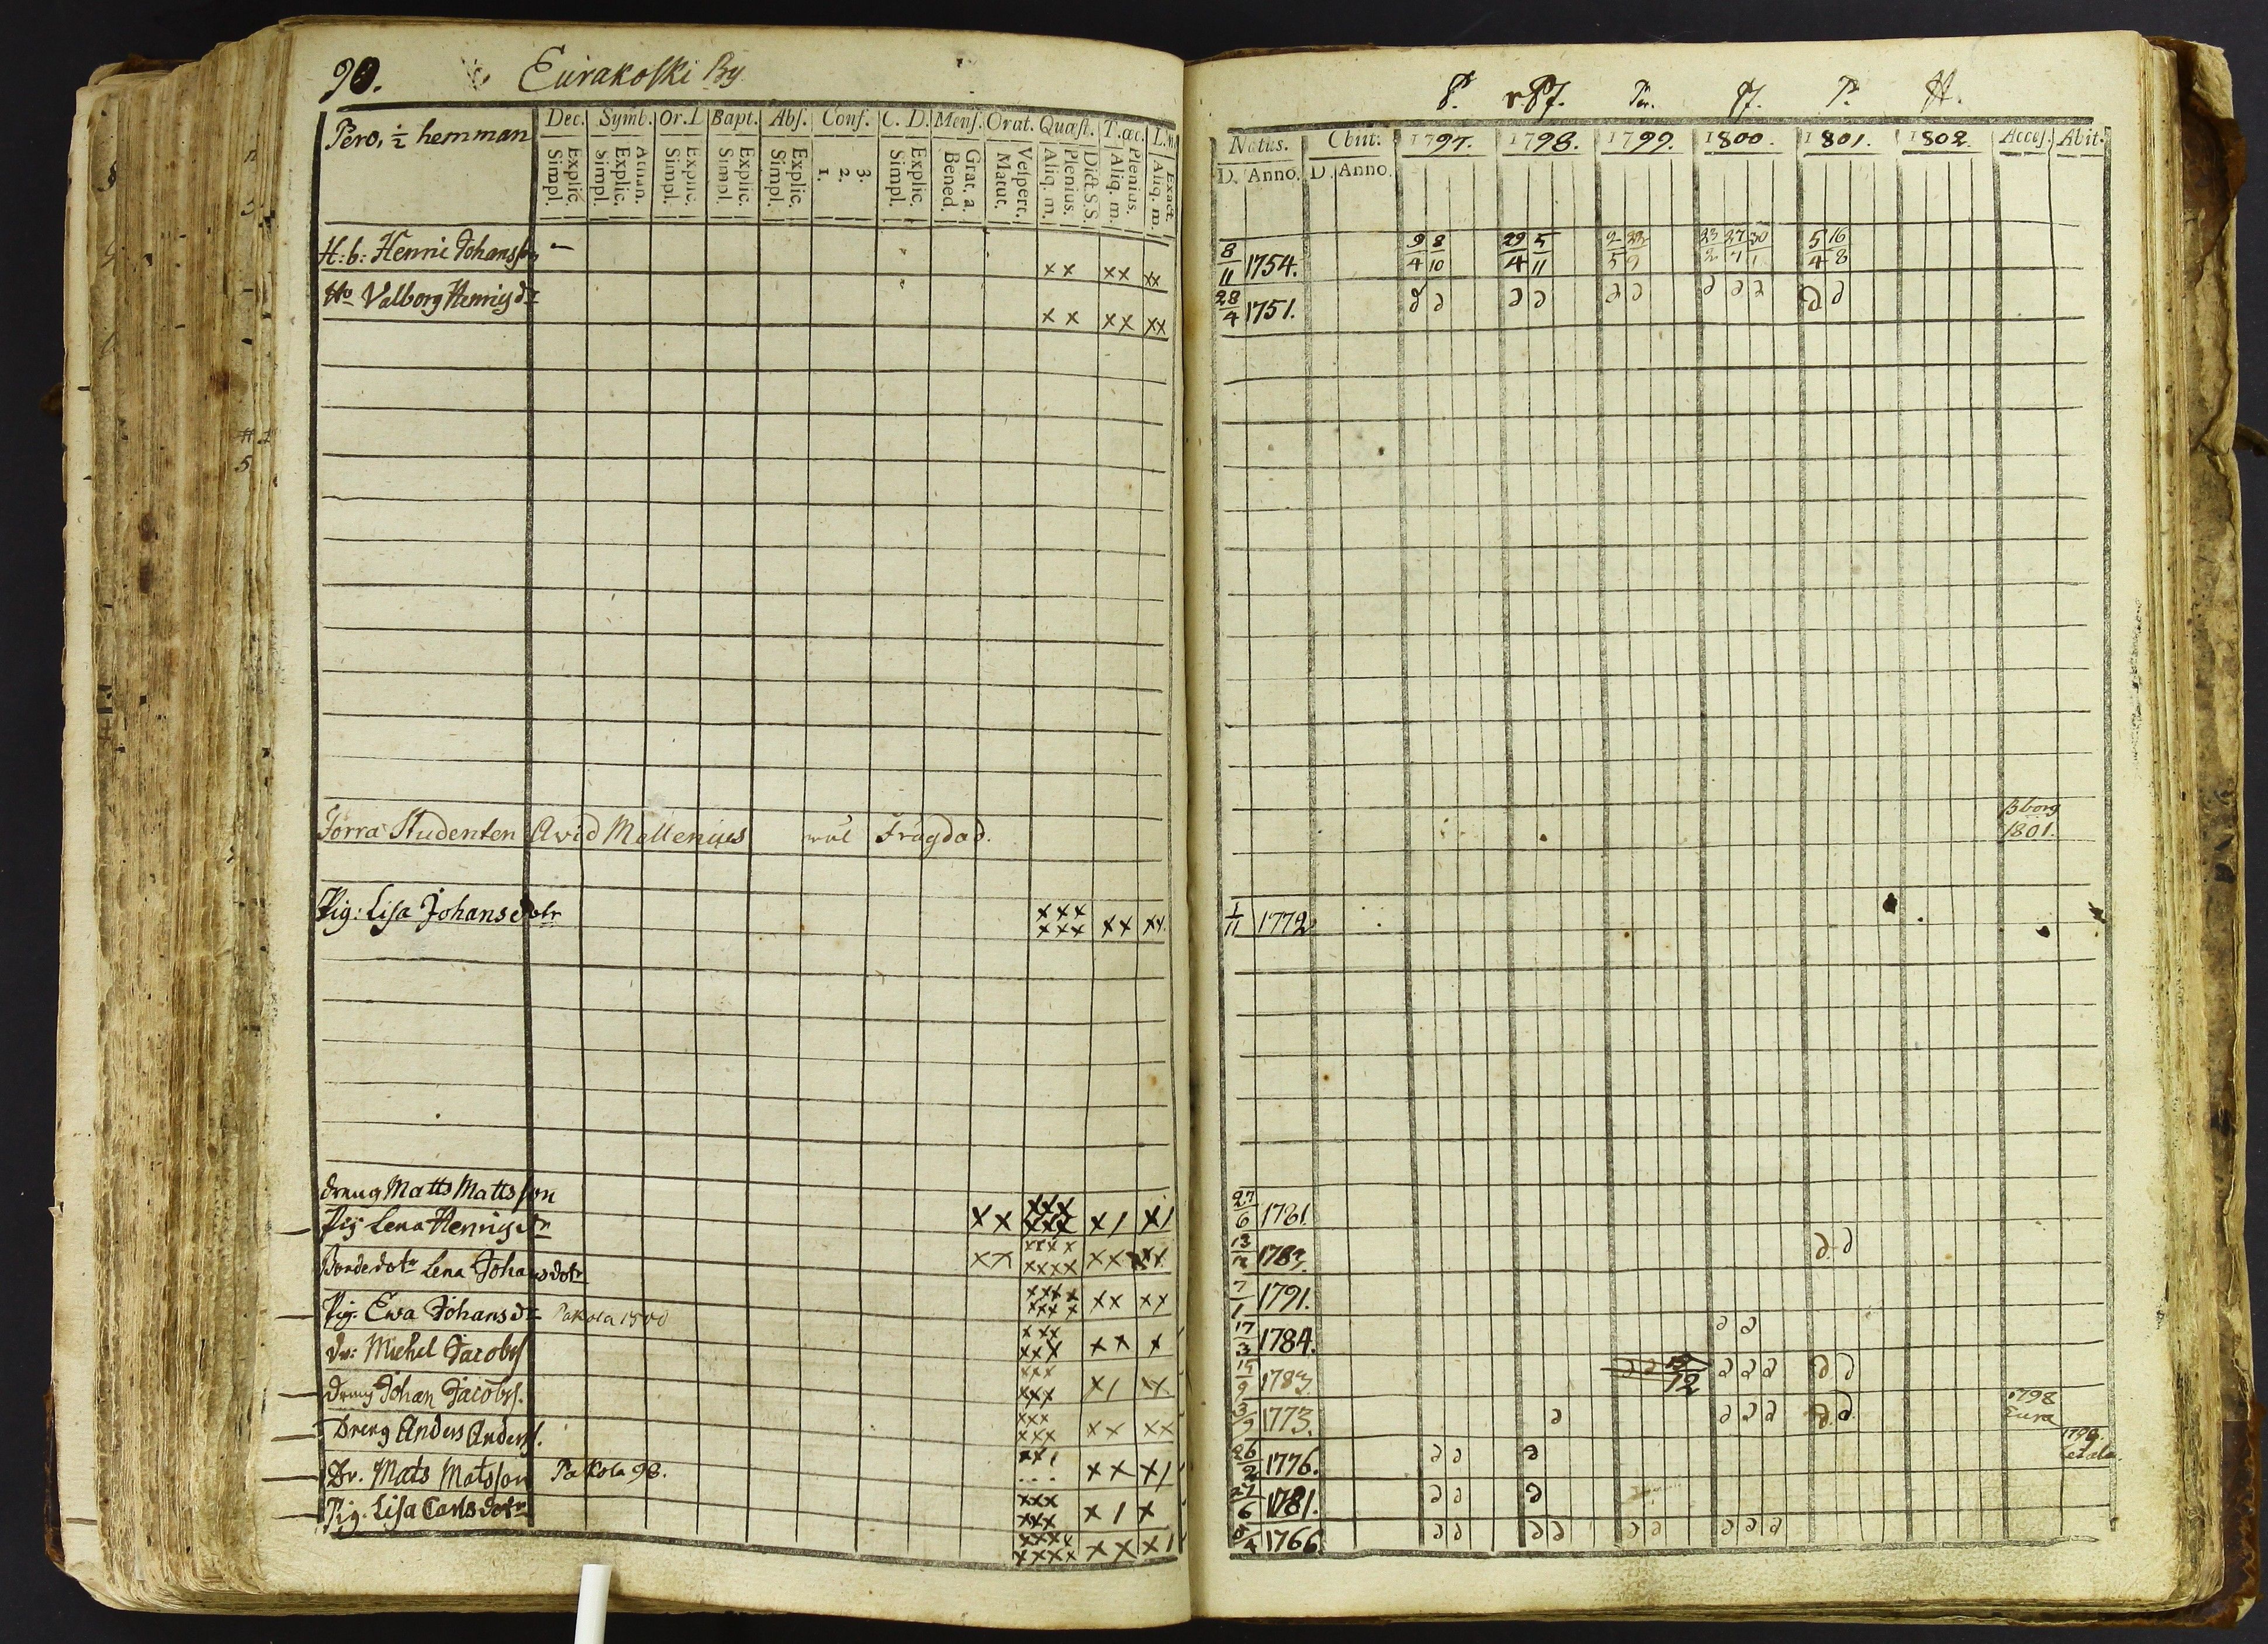 90. Eurakoski By.
Pero, ½ hemman
Dec. Symb. Or. D Bapt. Abs. Conf. C. D. Mens. Orat. Quæst. T. œc.
Explic. Simpl. Athan. Explic. Simpl. Explic. Simpl. Explic. Simpl. Explic. Simpl. 3. 2. 1. Explic. Simpl. Grat. a. Bened. Vespert. Matut. Dict. S.S. Plenius. Aliq. m. Plenius. Aliq. m. Exact. Aliq. m.
H:b: Henric Johansson — xx xx xx
Ho Valborg Henrigsdr xx xx xx
Förra Studenten Avid Mellenius Frägdad.
Pig: Lisa Johansdotr xxx xxx xx xx
dreng Matts Mattsson xx xxx xxx x/ x/
Pig Lena Henrigsdr xx xxxx xxxx xx xx
Bondedotr Lena Johansdotr xxxx xxxx xx xx
Pig. Ewa Johansdr Pakola 1800 xxx xxx xx x
dr: Michel Jacobs xxx xxx x/ xx
dreng Johan Jacobs. xxx xxx xx xx
Dreng Anders Anders. xx/ ... xx x/
Dr. Mats Matsson Pakola 98. xxx xxx x/ x
Pig. Lisa Carlsdotr xxxx xxxx xx x/
P. P. H.
Natus. Obiit. 1797. 1798. 1799. 1800. 1801. 1802. Acces. Abit.
D. Anno. D. Anno.
8/11 1754. 9/4 8/10 29/4 5/11 2/5 23/2 27/7 30/1 5/4 16/8
28/4 1751. ∂ ∂ ∂ ∂ ∂ ∂ ∂ ∂ ∂ ∂ ∂
Bborg
1801.
1/11 1772
27/6 1781
13/12 ∂ ∂
7/1 1791.
17/3 1784. ∂ ∂
15/9 ∂ ∂ ∂ ∂ ∂ ∂ ∂
3/9 1773. ∂ ∂ ∂ ∂ ∂ ∂ 1798 Eura
26/2 1776. ∂ ∂ ∂ 1798.
27/6 1781. ∂ ∂ ∂
1766. ∂ ∂ ∂ ∂ ∂ ∂ ∂ ∂ ∂